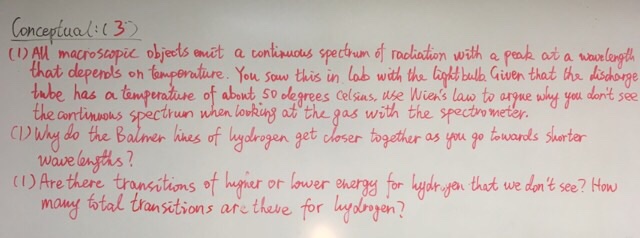 Conceptual: (3)
(1) All macroscopic objects emit a continuous spectrum of radiation with a peak at a wavelength
that depends on temperature. You saw this in lab with the lightbulb. Given that the discharge
tube has a temperature of about 50 degrees Celsius, use Wien's law to argue why you don't see
the continuous spectrum when looking at the gas with the spectrometer.
(1) Why do the Balmer lines of hydrogen get closer together as you go towards shorter
wavelengths?
(1) Are there transitions of higher or lower energy for hydrogen that we don't see? How
many total transitions are there for hydrogen?